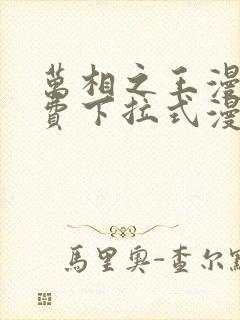 萬相之王漫
費下拉式漫
馬里奧-查尔